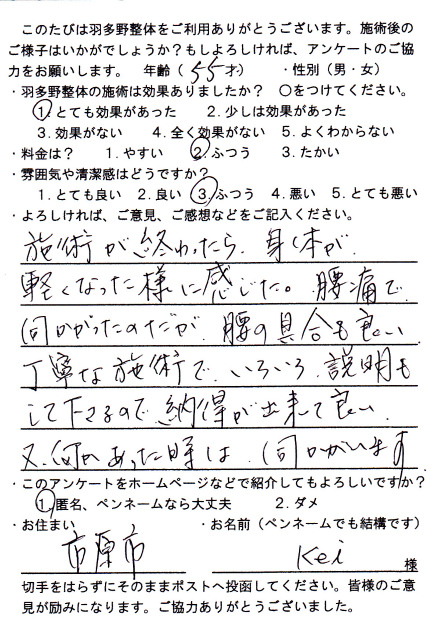 このたびは羽多野整体をご利用ありがとうございます。施術後の
ご様子はいかがでしょうか？もしよろしければ、アンケートのご協
力をお願いします。 年齢（ 55才） ・性別（男・女）
・羽多野整体の施術は効果ありましたか？ ○をつけてください。
1.とても効果があった 2.少しは効果があった
3.効果がない 4.全く効果がない 5.よくわからない
・料金は？ 1.やすい 2.ふつう 3.たかい
・雰囲気や清潔感はどうですか？
1.とても良い 2.良い 3.ふつう 4.悪い 5.とても悪い
・よろしければ、ご意見、ご感想などをご記入ください。
施術が終わったら、身体が、
軽くなった様に感じた。腰痛で
伺がかったのだが、腰の具合も良い
丁寧な施術で、いろいろ、説明も
して下さるので、納得が出来て良い、
又、何かあった時は、伺がいます
・このアンケートをホームページなどで紹介してもよろしいですか？
1.匿名、ペンネームなら大丈夫 2.ダメ
・お住まい ・お名前（ペンネームでも結構です）
市原市 Kei 様
切手をはらずにそのままポストへ投函してください。皆様のご意
見が励みになります。ご協力ありがとうございました。